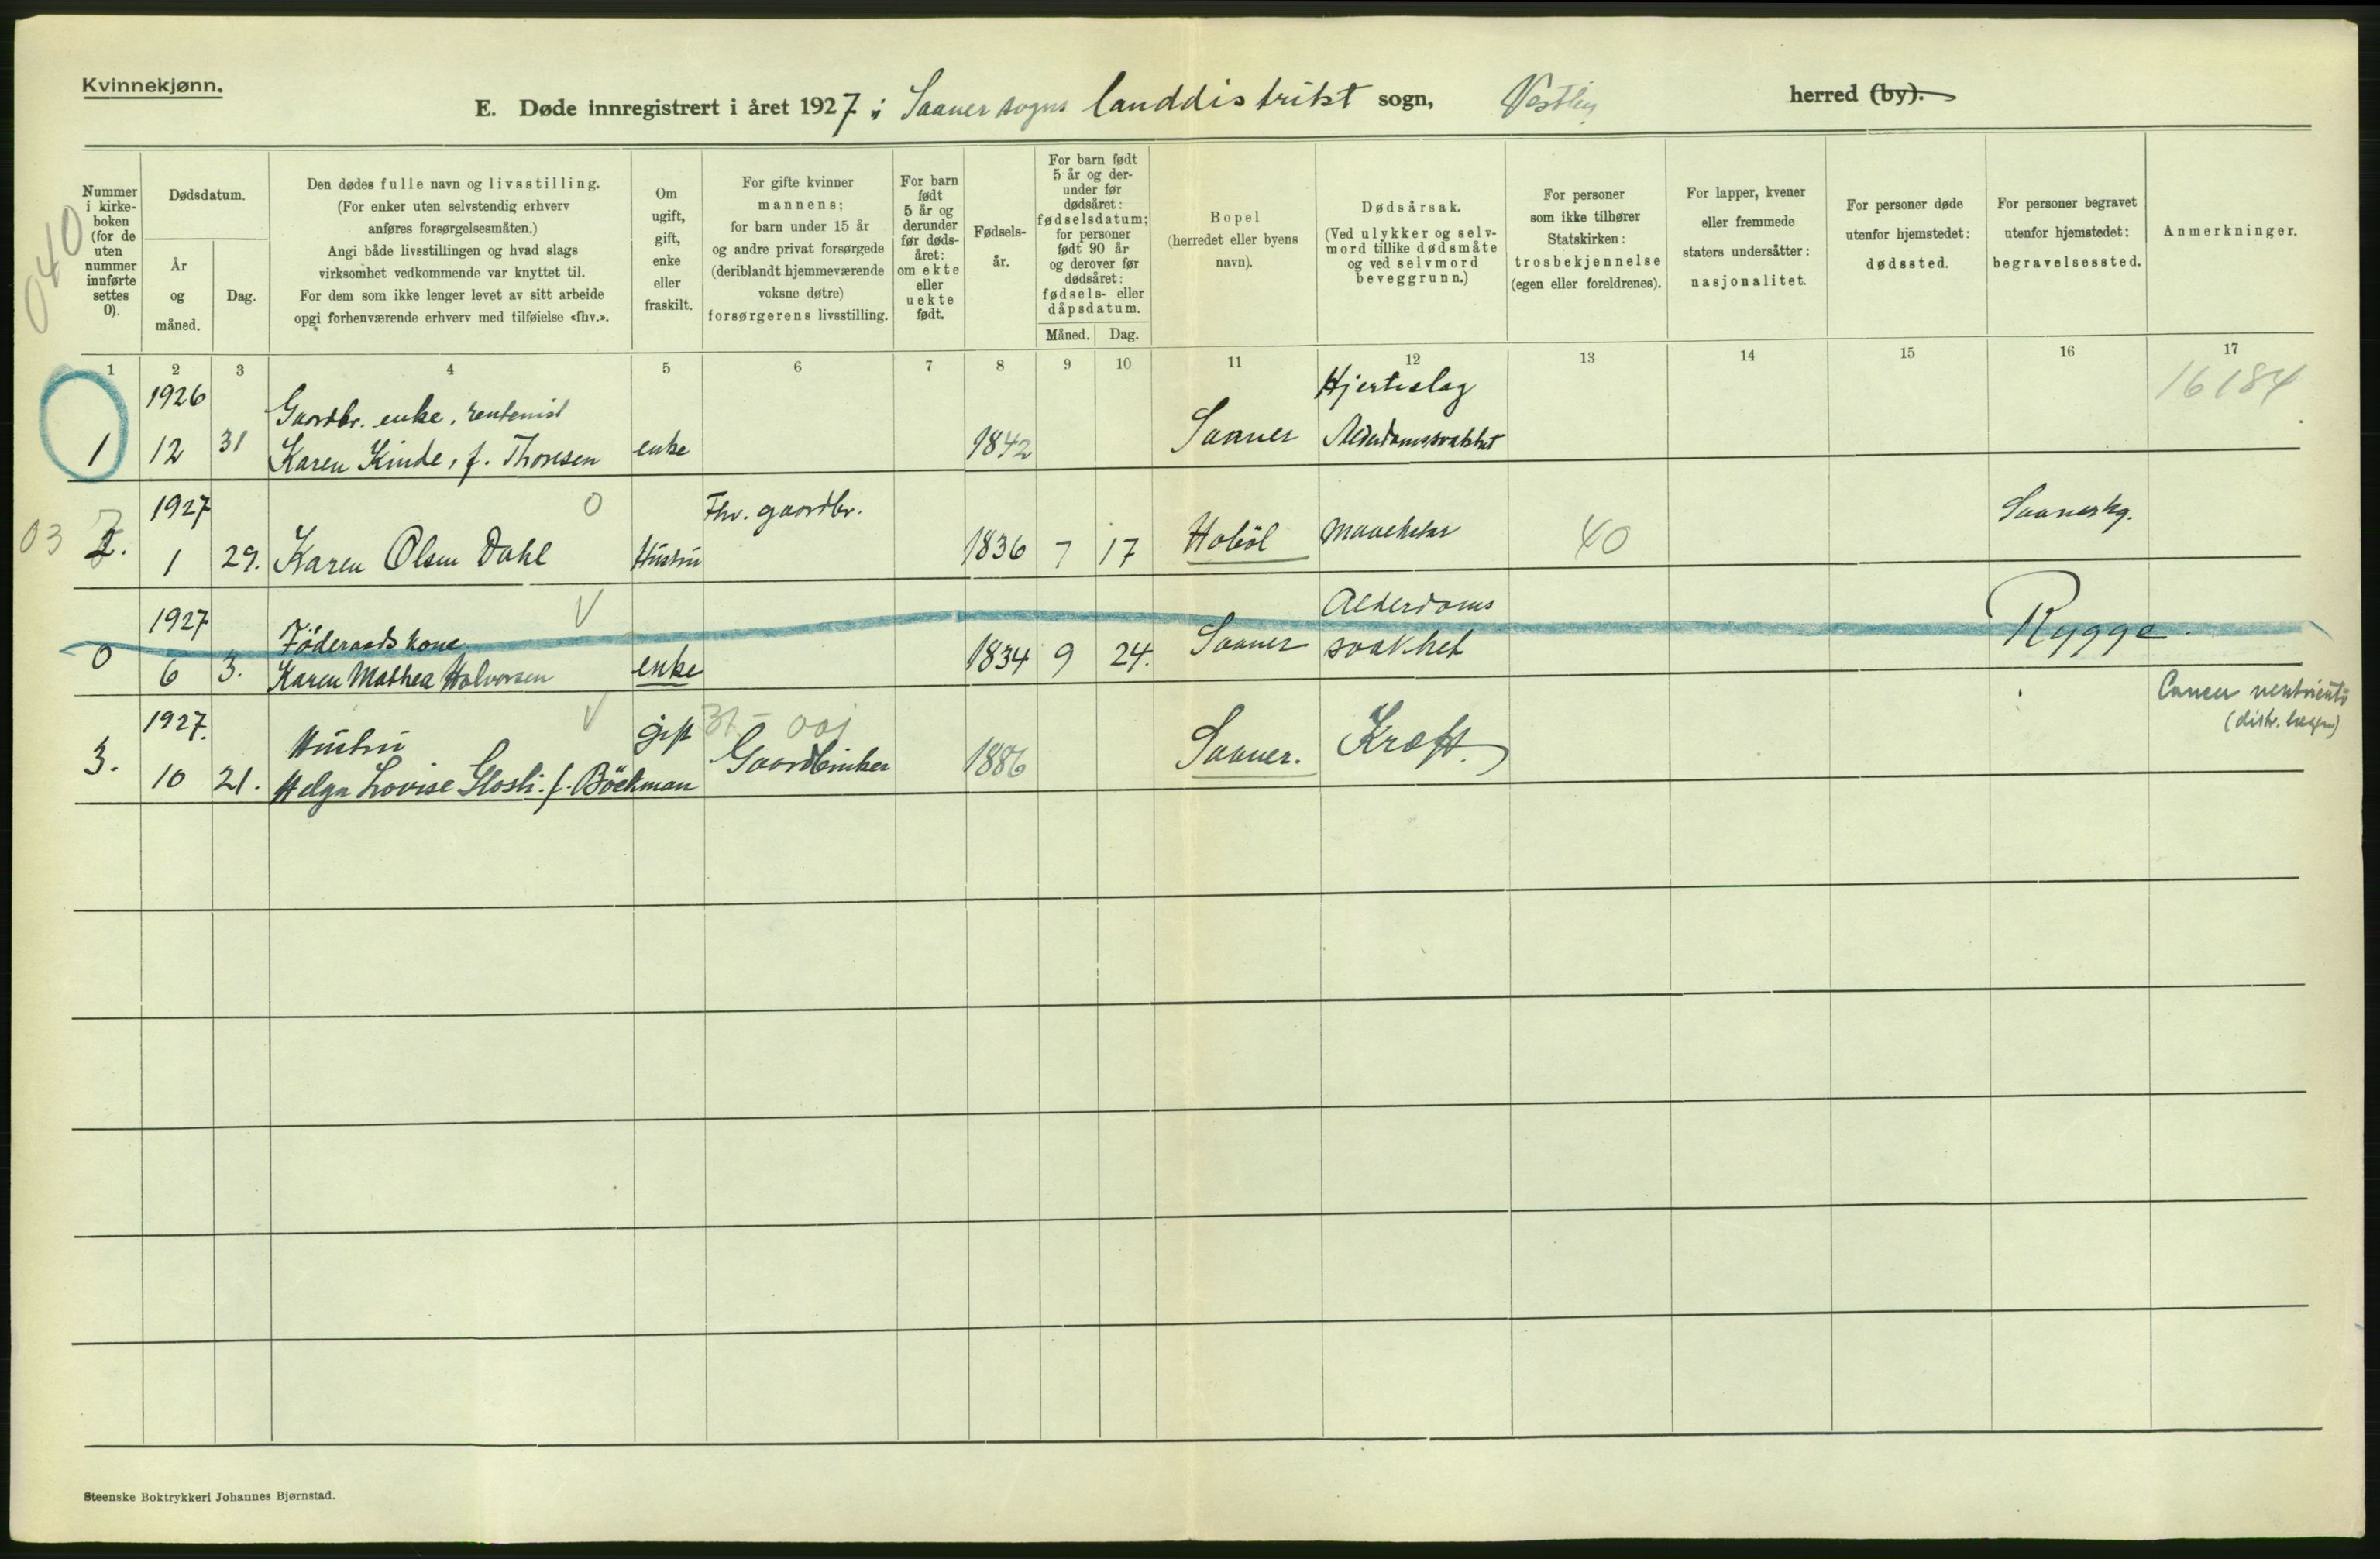 Kvinnekjønn.
E. Døde innregistrert i året 1927 i Saaner sogns landdistrikt sogn, Vestby herred (by).
040
Nummer
i kirke-
boken
(for de
uten
nummer
innførte
settes
0).
Dødsdatum.
År
og
måned.
Dag.
Den dødes fulle navn og livsstilling.
(For enker uten selvstendig erhverv
anføres forsørgelsesmåten.)
Angi både livsstillingen og hvad slags
virksomhet vedkommende var knyttet til.
For dem som ikke lenger levet av sitt arbeide
opgi forhenværende erhverv med tilføielse «fhv.».
Om
ugift,
gift,
enke
eller
fraskilt.
For gifte kvinner
mannens;
for barn under 15 år
og andre privat forsørgede
(deriblandt hjemmeværende
voksne døtre)
forsørgerens livsstilling.
For barn
født
5 år og
derunder
før døds-
året:
om ekte
eller
uekte
født.
Fødsels-
år.
For barn født
5 år og der-
under før
dødsåret:
fødselsdatum;
for personer
født 90 år
og derover før
dødsåret:
fødsels- eller
dåpsdatum.
Måned. Dag.
Bopel
(herredet eller byens
navn).
Dødsårsak.
(Ved ulykker og selv-
mord tillike dødsmåte
og ved selvmord
beveggrunn.)
For personer
som ikke tilhører
Statskirken:
trosbekjennelse
(egen eller foreldrenes).
For lapper, kvener
eller fremmede
staters undersåtter:
nasjonalitet.
For personer døde
utenfor hjemstedet:
dødssted.
For personer begravet
utenfor hjemstedet:
begravelsessted.
Anmerkninger.
1 2 3 4 5 6 7 8 9 10 11 12 13 14 15 16 17
1926 Gaardbr. enke, rentenist Hjerteslag 16184
1 12 31 Karen Kinde, f. Thoresen enke 1842 Saaner Alderdomssvakhet
1927 0 Fhv. gaardbr. Saanerkg.
03 2. 1 29. Karen Olsen Dahl Hustru 1836 7 17 Hobøl 40
1927 V Føderaadskone Alderdoms
0 6 3. Karen Mathea Halvorsen enke 1834 9 24. Saaner svakhet Rygge.
1927. Hustru V gift 31 - 001 Cancer ventriculi
(distr. lægen)
3. 10 21. Helga Lovise Slosli. f. Böckman Gaardbruker 1886 Saaner. Kræft.
Steenske Boktrykkeri Johannes Bjørnstad.